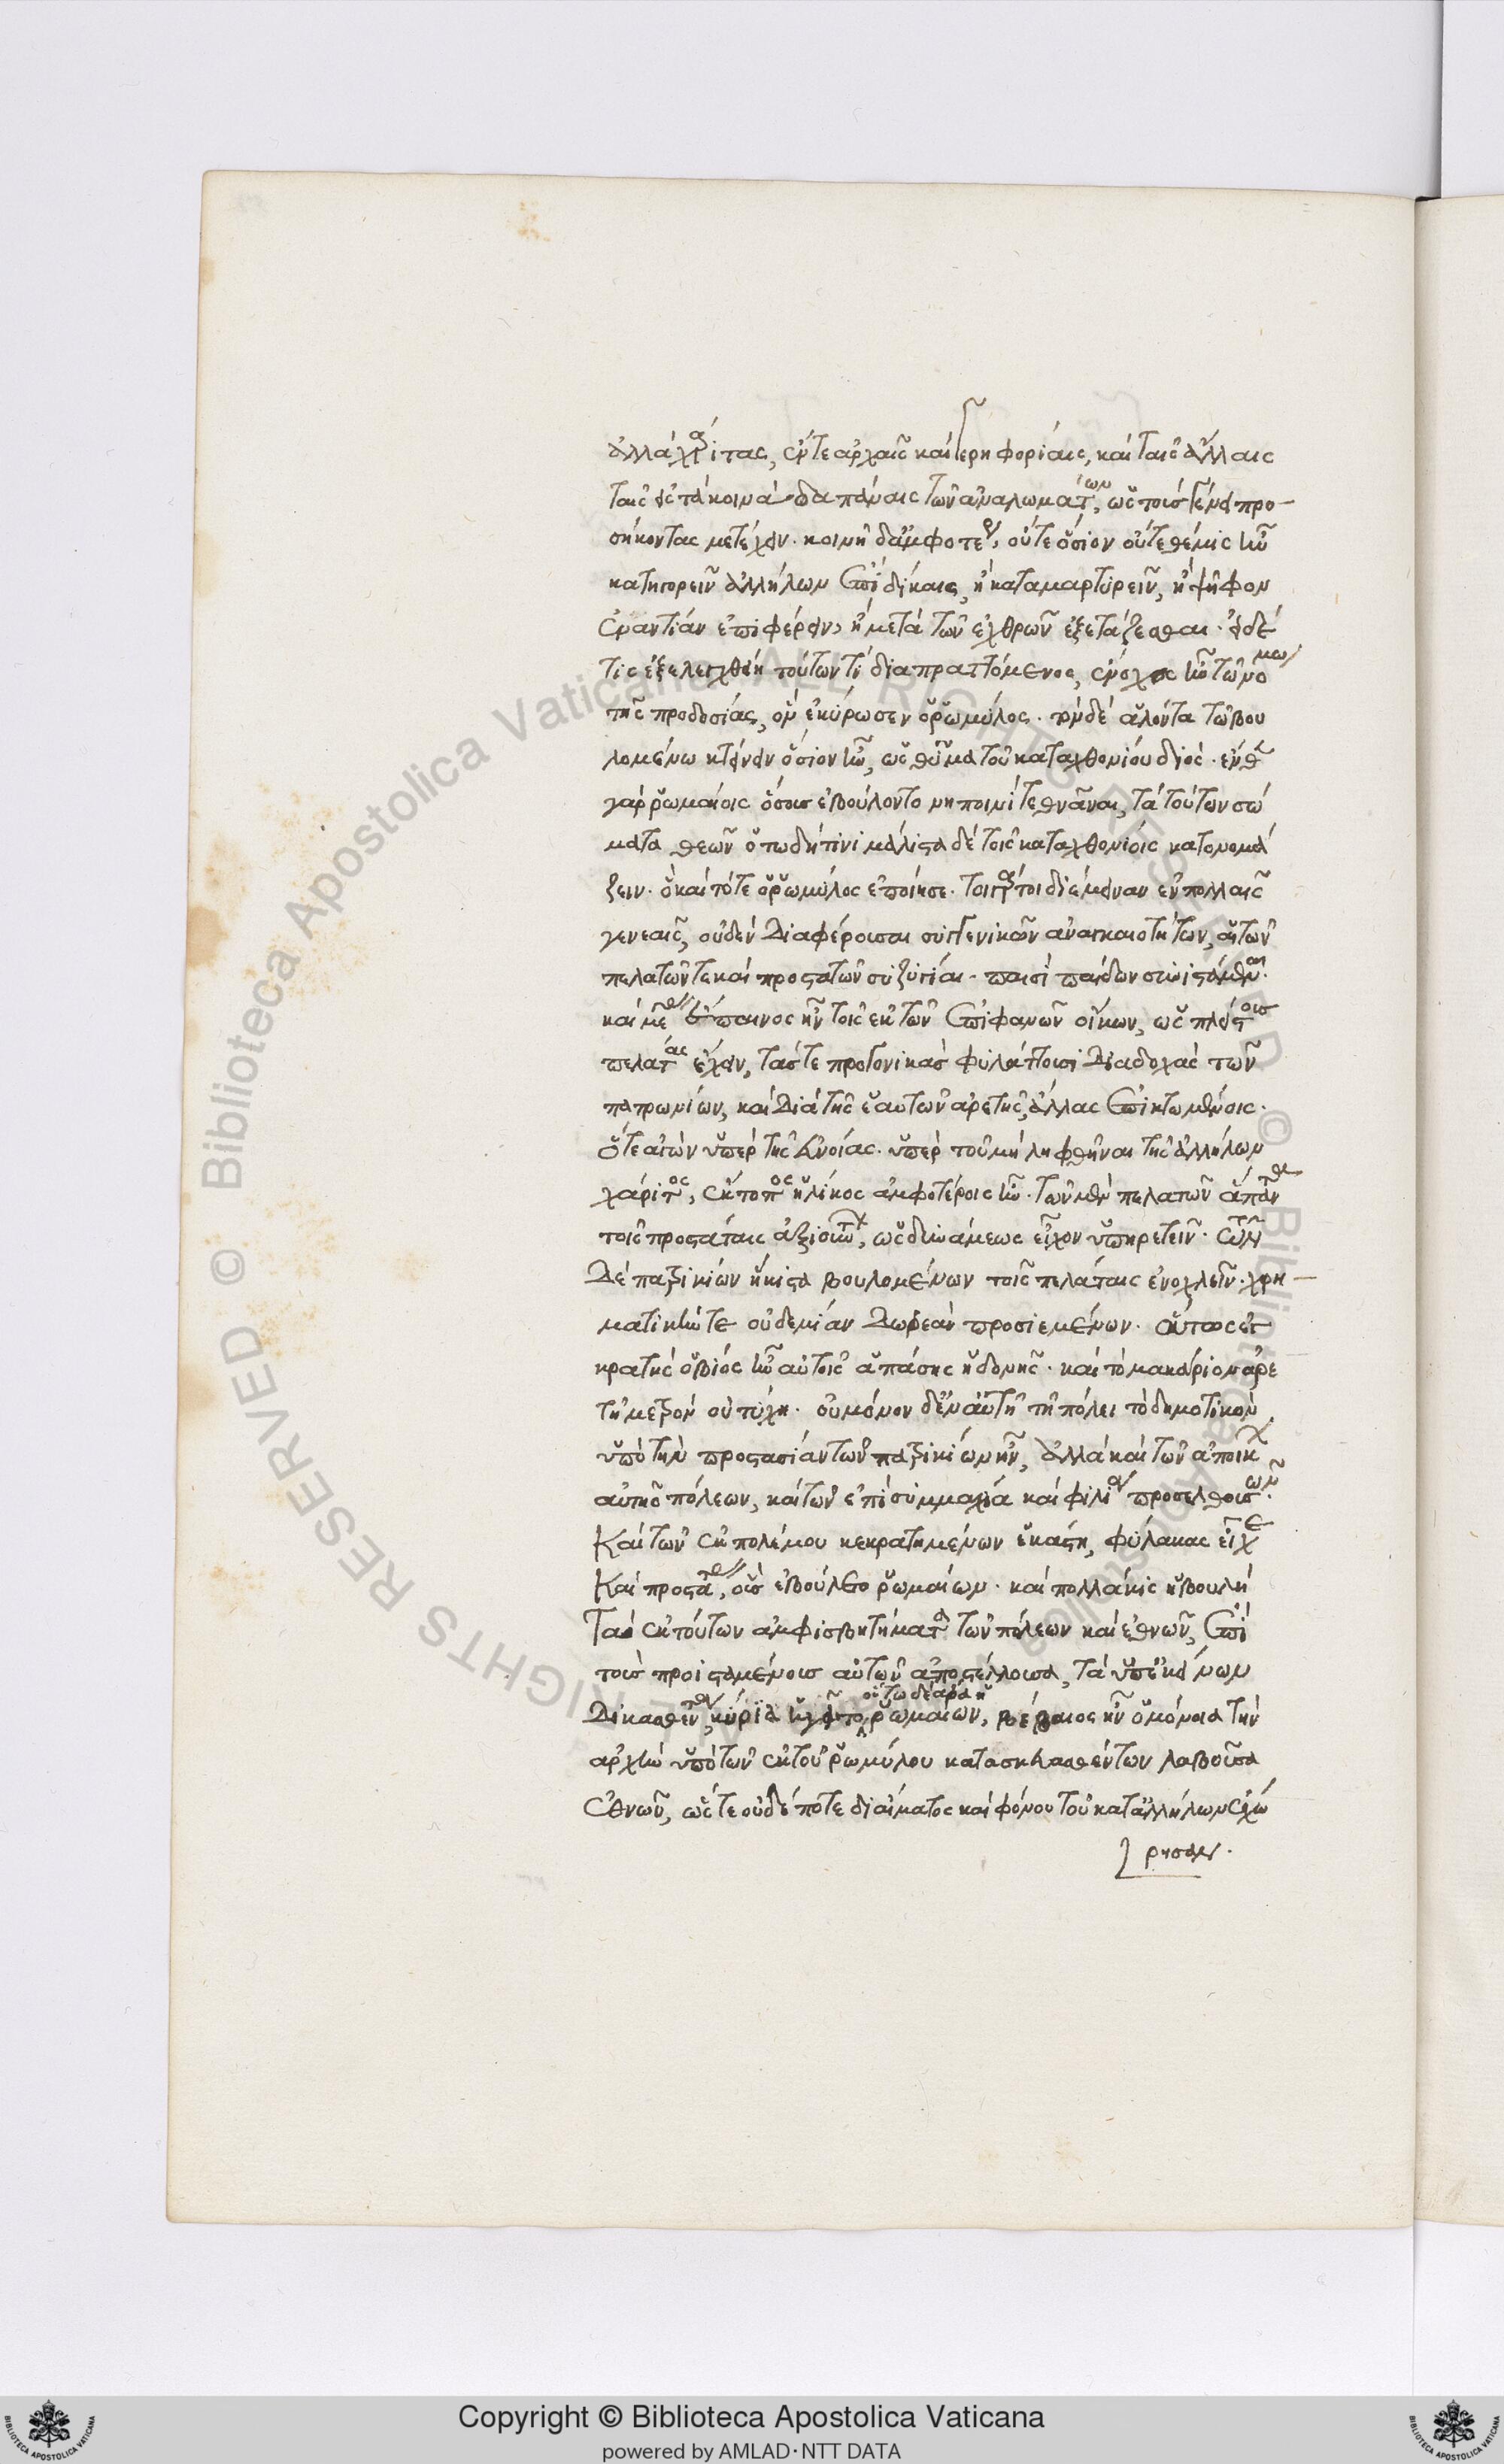 ἀλλὰ χάριτας, ἔν τε ἀρχαῖς καὶ γερηφορίαις, καὶ ταῖς ἄλλαις
ταῖς εἰς τὰ κοινὰ δαπάναις τῶν ἀναλωμάτων, ὡς τοὺς γένει προ-
σήκοντας μετέχειν. κοινῇ δ' ἀμφοτέροις, οὔτε ὅσιον οὔτε θέμις ἦν
κατηγορεῖν ἀλλήλων ἐπὶ δίκαις, ἢ καταμαρτυρεῖν, ἢ ψῆφον
ἐναντίαν ἐπιφέρειν, ἢ μετὰ τῶν ἐχθρῶν ἐξετάζεσθαι. εἰ δέ
τις ἐξελεγχθείη τούτων τι διαπραττόμενος, ἔνοχος ἦν τῷ νόμῳ
τῆς προδοσίας, ὃν ἐκύρωσεν ὁ ῥωμύλος. τὸν δὲ ἁλόντα τῷ βου
λομένω κτείνειν ὅσιον ἦν, ὡς θῦμα τοῦ καταχθονίου διός. ἐν ἔθει
γὰρ ῥωμαίοις ὅσους ἐβούλοντο νηποινὶ τεθνάναι, τὰ τούτων σώ
ματα θεῶν ὅτῳ δήτινι μάλιστα δὲ τοῖς καταχθονίοις κατονομά
ζειν. ὃ καὶ τότε ὁ ῥωμύλος ἐποίησε. τοιγάρτοι διέμειναν ἐν πολλαῖς
γενεαῖς, οὐδὲν διαφέρουσαι συγγενικῶν ἀναγκαιοτήτων, αἱ τῶν
πελατῶν τε καὶ προστατῶν συζυγίαι. παισὶ παίδων συνιστάμεναι.
καὶ μέγας ἔπαινος ἦν τοῖς ἐκ τῶν ἐπιφανῶν οἴκων, ὡς πλείστους
πελάτας ἔχειν, τάς τε προγονικὰς φυλάττουσι διαδοχὰς τῶν
πατρωνίων, καὶ διὰ τῆς ἑαυτῶν ἀρετῆς, ἄλλας ἐπικτωμένοις.
ὅ τε ἀγὼν ὑπὲρ τῆς εὐνοίας. ὑπὲρ τοῦ μὴ λειφθῆναι τῆς ἀλλήλων
χάριτος, ἔκτοπος ἡλίκος ἀμφοτέροις ἦν. τῶν μὲν πελατῶν ἅπαντα
τοῖς προστάταις ἀξιούντων, ὡς δυνάμεως εἶχον ὑπηρετεῖν. τῶν
δὲ πατρικίων ἥκιστα βουλομένων τοῖς πελάταις ἐνοχλεῖν. χρη-
ματικήν τε οὐδεμίαν δωρεὰν προσιεμένων. οὕτως ἐγ
κρατὴς ὁ βίος ἦν αὐτοῖς ἁπάσης ἡδονῆς. καὶ τὸ μακάριον ἀρε
τῇ μετρῶν οὐ τύχῃ. οὐ μόνον δ' ἐν αὐτῇ τῇ πόλει τὸ δημοτικὸν
ὑπὸ τὴν προστασίαν τῶν πατρικίων ἦν, ἀλλὰ καὶ τῶν ἀποίκων
αὐτῆς πόλεων, καὶ τῶν ἐπὶ συμμαχία καὶ φιλία προσελθουσῶν.
Καὶ τῶν ἐκ πολέμου κεκρατημένων ἑκάστη, φύλακας εἶχε
Καὶ προστάτας, οὓς ἐβούλετο ῥωμαίων. καὶ πολλάκις ἡ βουλὴ
Τὰ ἐκ τούτων ἀμφισβητήματα τῶν πόλεων καὶ ἐθνῶν, ἐπὶ
τοὺς προισταμένους αὐτῶν ἀποστέλλουσα, τὰ ὑπ' ἐκείνων
Δικασθέντα, κύρια ἡγεῖτο. οὕτω δὲ ἄρα ἡ ῥωμαίων, βέβαιος ἦν ὁμόνοια τὴν
ἀρχὴν ὑπὸ τῶν ἐκ τοῦ ῥωμύλου κατασκευασθέντων λαβοῦσα
ἐθνῶν, ὥστε οὐδέποτε δι' αἵματος καὶ φόνου τοῦ κατ' ἀλλήλων ἐχώ
ρησαν.